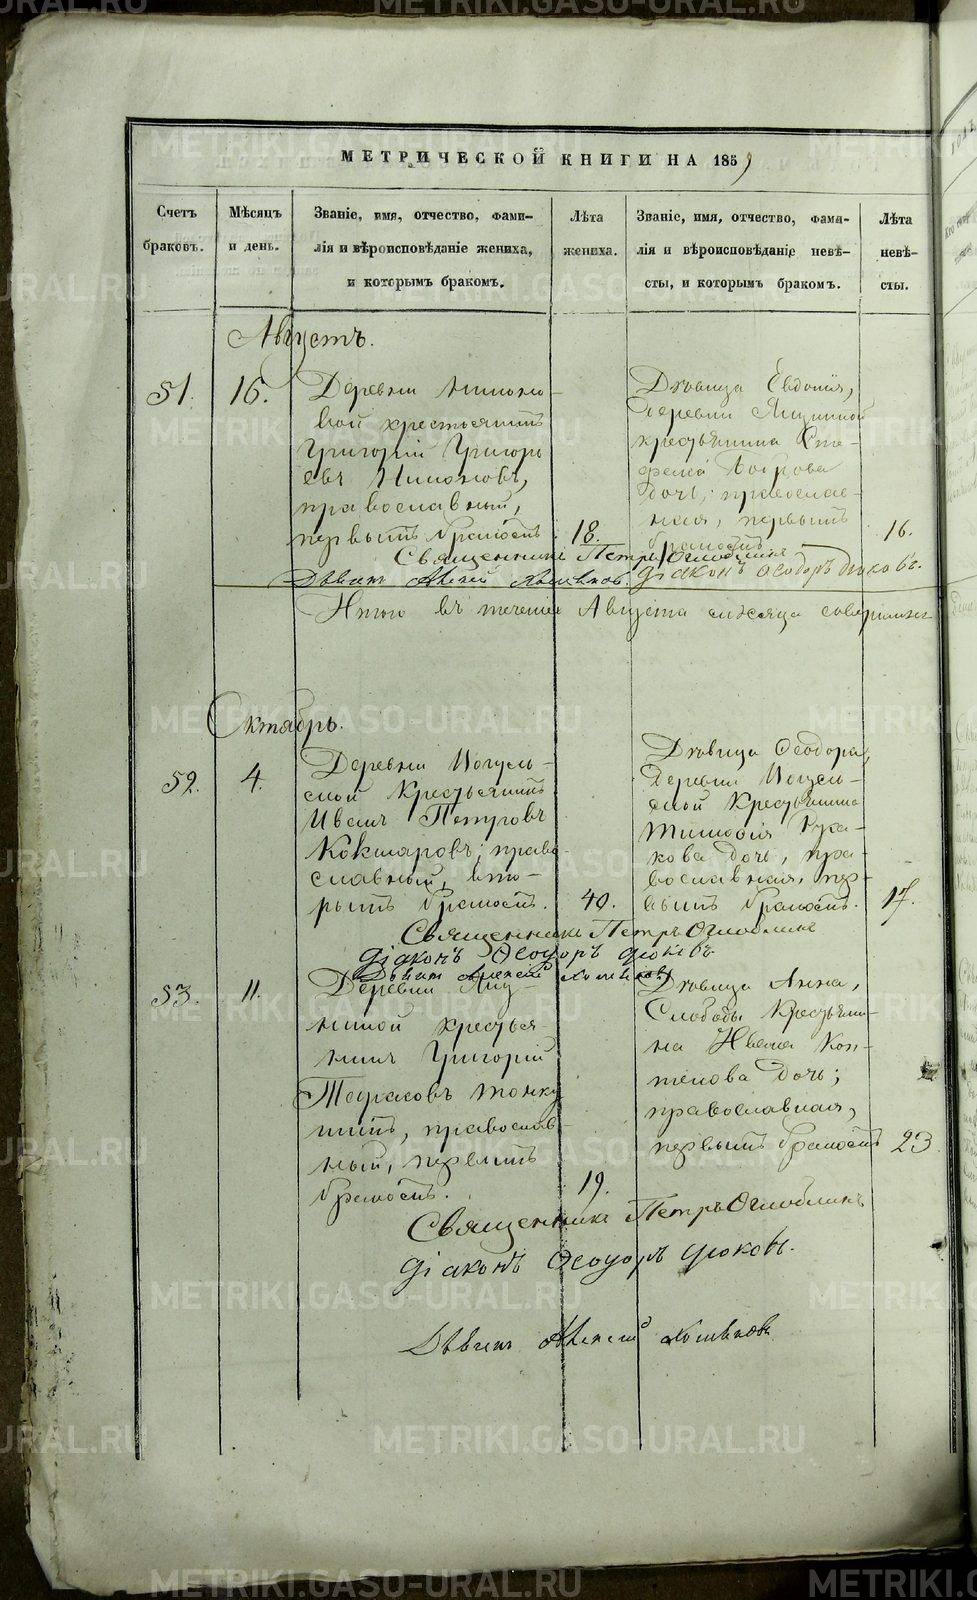 МЕТРИЧЕСКОЙ КНИГИ НА 1859
Счетъ
браковъ.
Мѣсяцъ
и день.
Званіе, имя, отчество, фами-
лія и вѣроисповѣданіе жениха,
и которымъ бракомъ.
Лѣта
жениха.
Званіе, имя, отчество, фами-
лія и вѣроисповѣданіе невѣ-
сты, и которымъ бракомъ.
Лѣта
невѣ-
сты.
Августъ.
51.
16.
Деревни
вой крестьянинъ
Григорій Григорь
евъ
православный,
первымъ бракомъ.
18.
Дѣвица Евдокія,
деревни
крестьянина Сте-
фана Боброва
дочь, православ-
ная, первымъ
бракомъ
16.
Священникъ Петръ Оглоблинъ
Діаконъ Ѳеодоръ
Алексей
Итого въ течение Августа месяца
Октябрь.
52.
4.
Деревни
ской Крестьянинъ
Иванъ Петровъ
Кокшаровъ, право-
славный, вто-
рымъ бракомъ.
40.
Дѣвица Ѳеодора,
Деревни
ской Крестьянина
Тимофея Руса-
кова дочь, пра-
вославная, пер-
вымъ бракомъ.
17.
Священникъ Петръ Оглоблинъ
Діаконъ Ѳеодоръ
Алексей
53.
11.
Деревни
ниной крестья-
нинъ Григорій
Тарасовъ
православ-
ный, первымъ
бракомъ.
19.
Дѣвица Анна,
Слободы Крестьяни-
на Ивана Коп-
телова дочь;
православная,
первымъ бракомъ
23.
Священникъ Петръ Оглоблинъ
Діаконъ Ѳеодоръ
Алексей
METRIKI.GASO-URAL.RU